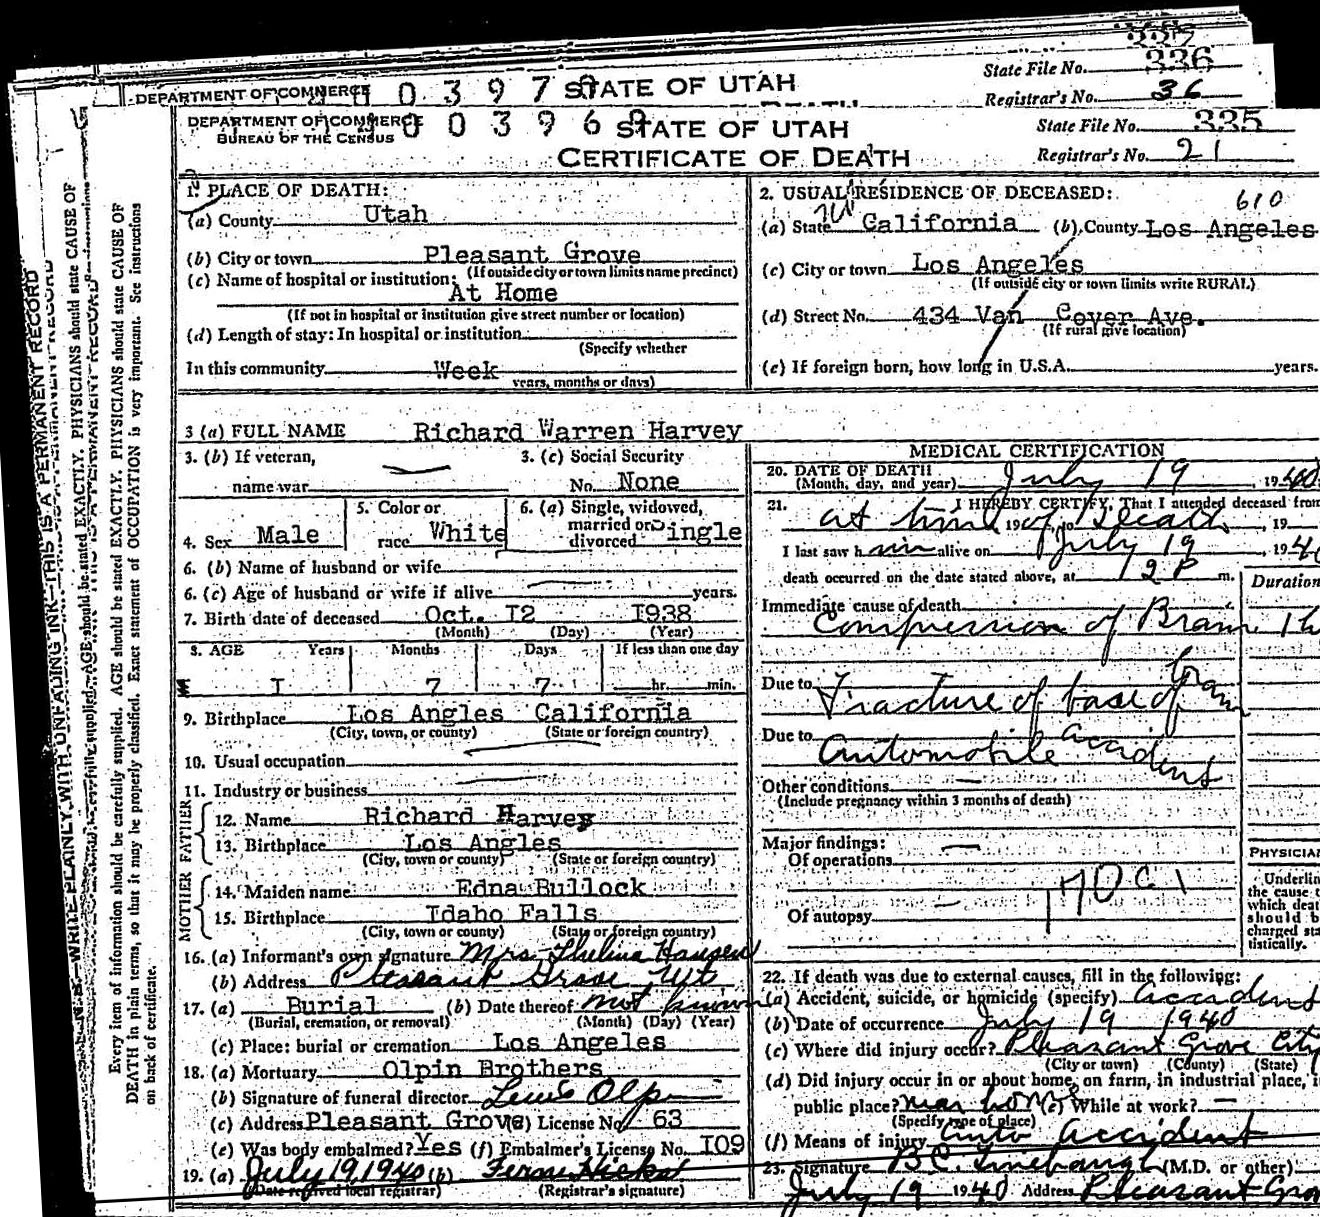 336
State File No.
DEPARTMENT OF COMMERCE 0 3 9 7 STATE OF UTAH
Registrar's No. 36
DEPARTMENT OF COMMERCE 0 0 3 9 6 9 STATE OF UTAH
BUREAU OF THE CENSUS
State File No. 335
CERTIFICATE OF DEATH
Registrar's No. 21
WRITE PLAINLY, WITH UNFADING INK—THIS IS A PERMANENT RECORD
Every item of information should be carefully supplied. AGE should be stated EXACTLY. PHYSICIANS should state CAUSE OF
DEATH in plain terms, so that it may be properly classified. Exact statement of OCCUPATION is very important. See instructions
on back of certificate.
1. PLACE OF DEATH:
(a) County Utah
(b) City or town Pleasant Grove
(If outside city or town limits name precinct)
(c) Name of hospital or institution:
At Home
(If not in hospital or institution give street number or location)
(d) Length of stay: In hospital or institution
(Specify whether
In this community Week
years, months or days)
2. USUAL RESIDENCE OF DECEASED:
610
(a) State California (b) County Los Angeles
(c) City or town Los Angeles
(If outside city or town limits write RURAL)
(d) Street No. 434 Van Cover Ave.
(If rural give location)
(e) If foreign born, how long in U.S.A. years.
3 (a) FULL NAME Richard Warren Harvey
3. (b) If veteran,
name war
3. (c) Social Security
No. None
4. Sex Male
5. Color or
race White
6. (a) Single, widowed,
married or
divorced Single
6. (b) Name of husband or wife
6. (c) Age of husband or wife if alive years.
7. Birth date of deceased Oct. I2 I938
(Month) (Day) (Year)
8. AGE Years Months Days If less than one day
I 7 7 hr. min.
9. Birthplace Los Angles California
(City, town, or county) (State or foreign country)
10. Usual occupation
11. Industry or business
FATHER
12. Name Richard Harvey
13. Birthplace Los Angles
(City, town or county) (State or foreign country)
MOTHER
14. Maiden name Edna Bullock
15. Birthplace Idaho Falls
(City, town or county) (State or foreign country)
16. (a) Informant's own signature Mrs. Thelma Hansen
(b) Address Pleasant Grove, Ut
17. (a) Burial (b) Date thereof not known
(Burial, cremation, or removal) (Month) (Day) (Year)
(c) Place: burial or cremation Los Angeles
18. (a) Mortuary Olpin Brothers
(b) Signature of funeral director
(c) Address Pleasant Grove License No. 63
(e) Was body embalmed? Yes (f) Embalmer's License No. I09
19. (a) July 19, 1940 (b) Fern Hicks
(Date received local registrar) (Registrar's signature)
MEDICAL CERTIFICATION
20. DATE OF DEATH
(Month, day, and year) July 19, 1940
21. I HEREBY CERTIFY, That I attended deceased from
at time 19 of, to Death, 19
I last saw him alive on July 19, 194
death occurred on the date stated above, at 12 P m.
Duration
Immediate cause of death
Compression of Brain 1 h
Due to Fracture of base of
Due to Automobile accident
Other conditions —
(Include pregnancy within 3 months of death)
Major findings:
Of operations —
170 C 1
Of autopsy —
PHYSICIAN
Underlin
the cause t
which deat
should b
charged sta
tistically.
22. If death was due to external causes, fill in the following:
(a) Accident, suicide, or homicide (specify) accident
(b) Date of occurrence July 19 1940
(c) Where did injury occur? Pleasant Grove City
(City or town) (County) (State)
(d) Did injury occur in or about home, on farm, in industrial place, i
public place? near home (e) While at work? —
(Specify type of place)
(f) Means of injury auto accident
23. Signature B.C. Linebaugh (M.D. or other)
July 19 1940 Address Pleasant Gro